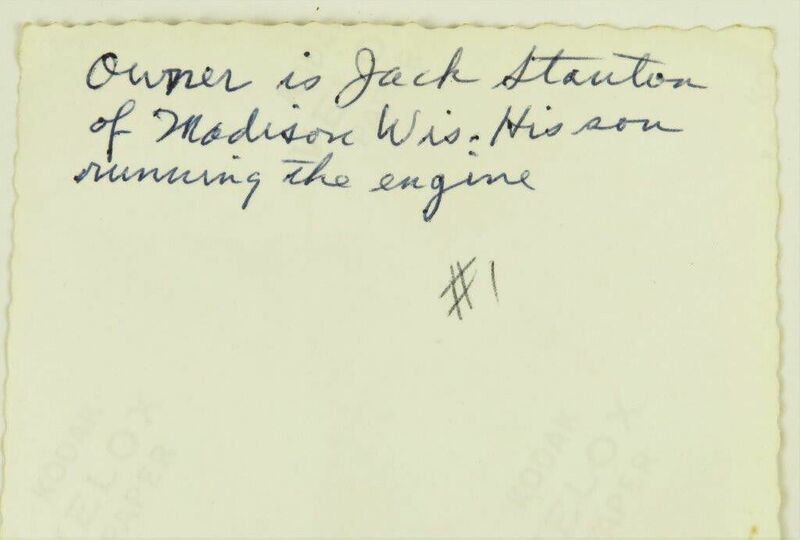 Owner is Jack Stanton
of Madison Wis. His son
running the engine
#1
KODAK
VELOX
PAPER
KODAK
VELOX
PAPER